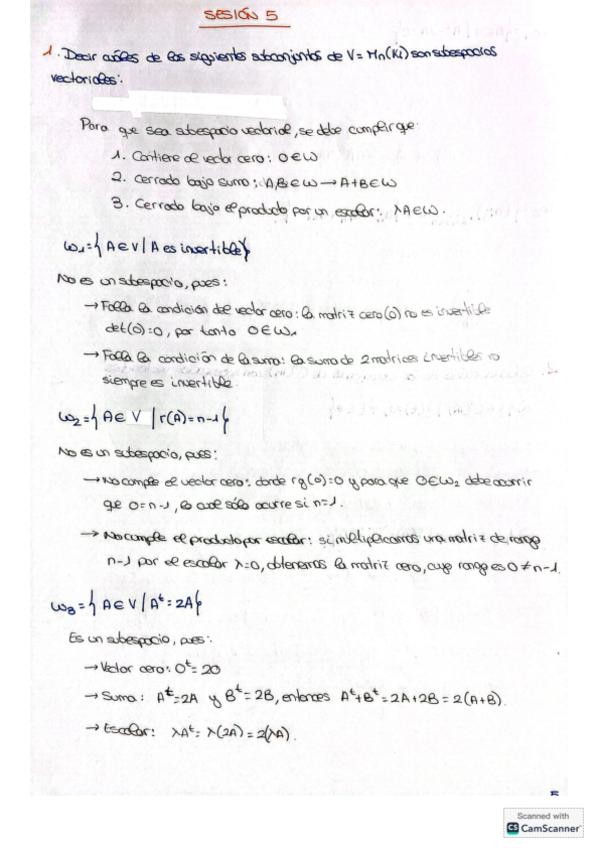 SESIÓN 5
1. Decir cuáles de los siguientes subconjuntos de V = Mn(K) son subespacios
vectoriales:
Para que sea subespacio vectorial, se debe cumplir que:
1. Contiene al vector cero: 0∈W
2. Cerrado bajo suma: A,B∈W → A+B∈W
3. Cerrado bajo el producto por un escalar: λA∈W.
W₁={A∈V | A es invertible}
No es un subespacio, pues:
→ Falla la condición del vector cero: la matriz cero (0) no es invertible
det(0)=0, por tanto 0∈W₁
→ Falla la condición de la suma: la suma de 2 matrices invertibles no
siempre es invertible.
W₂={A∈V | r(A)=n-1}
No es un subespacio, pues:
→ No cumple el vector cero: donde rg(0)=0 y para que 0∈W₂ debe ocurrir
que 0=n-1, lo cual sólo ocurre si n=1.
→ No cumple el producto por escalar: si multiplicamos una matriz de rango
n-1 por el escalar λ=0, obtenemos la matriz cero, cuyo rango es 0≠n-1.
W₃={A∈V | Aᵗ=2A}
Es un subespacio, pues:
→ Vector cero: 0ᵗ=20
→ Suma: Aᵗ=2A y Bᵗ=2B, entonces Aᵗ+Bᵗ=2A+2B=2(A+B).
→ Escalar: λAᵗ=λ(2A)=2(λA).
5
Scanned with
CS CamScanner